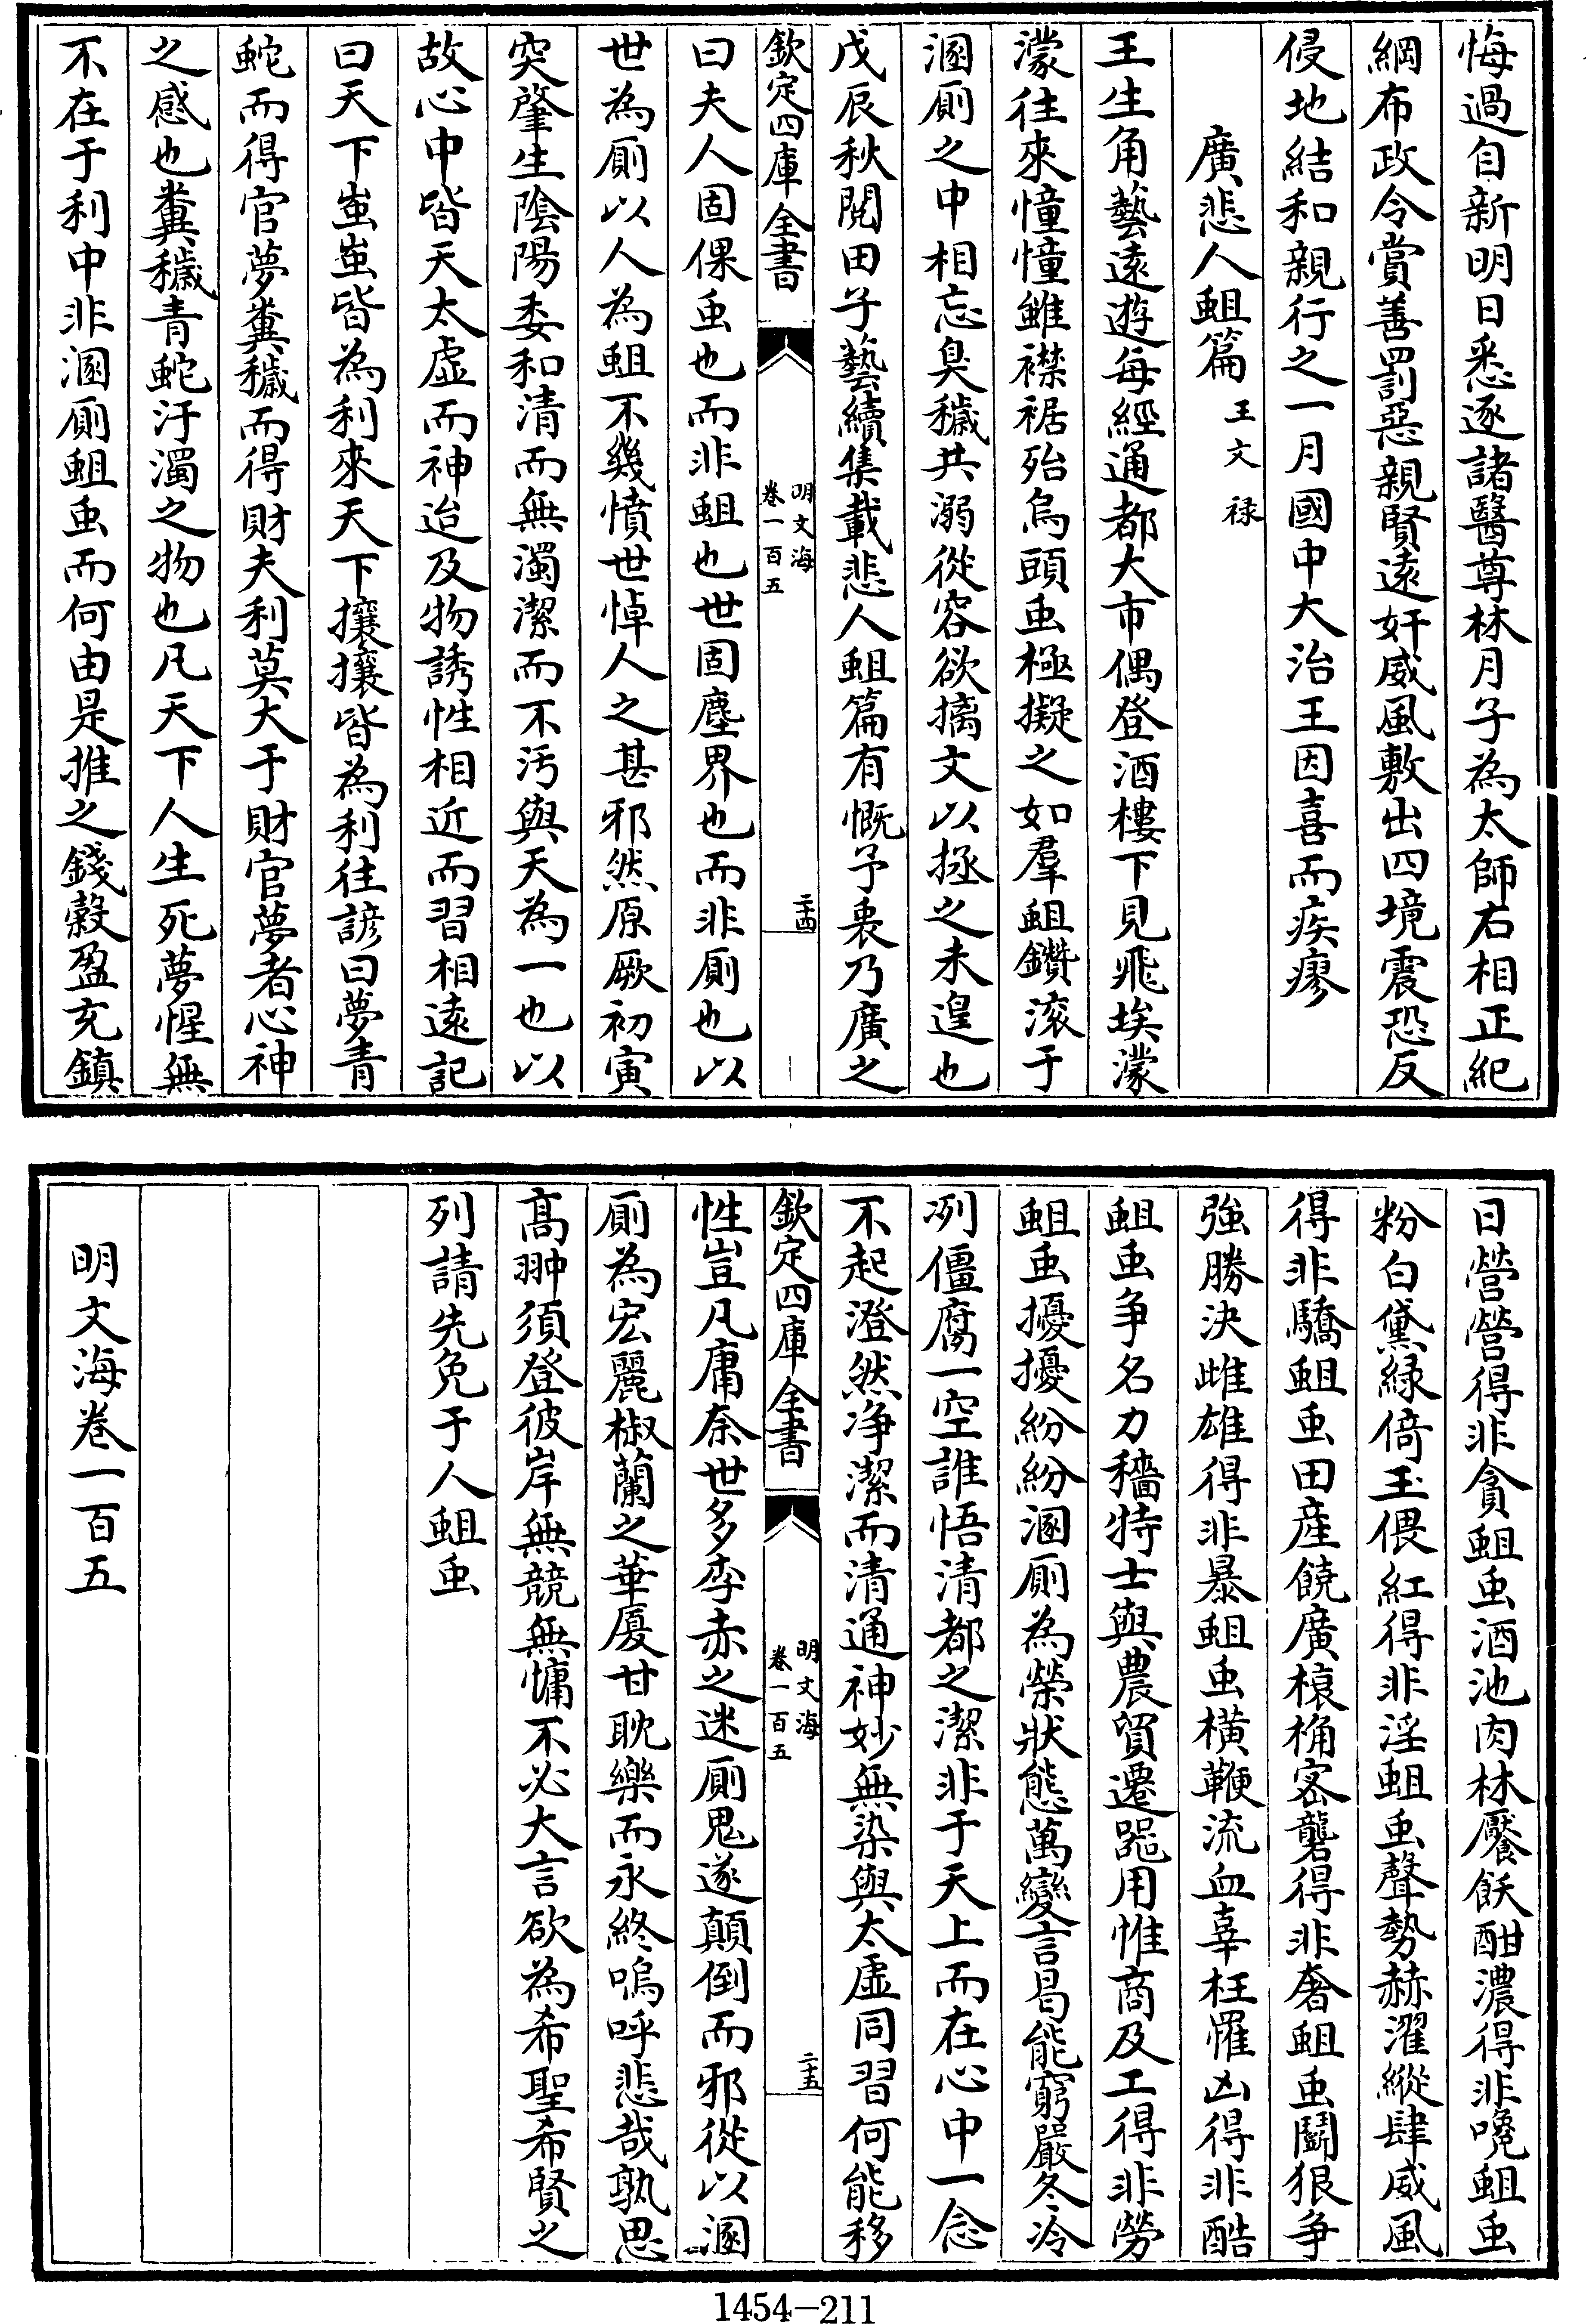 悔過自新明日悉逐諸醫尊林月子為太師右相正紀
綱布政令賞善罰惡親賢遠奸威風敷出四境震恐反
侵地結和親行之一月國中大治王因喜而疾瘳
廣悲人蛆篇 王文祿
王生角藝遠遊每經通都大市偶登酒樓下見飛埃濛
濛往來憧憧雖襟裾殆烏頭䖝極擬之如羣蛆鑽滚于
溷厠之中相忘臭穢共溺從容欲摛文以拯之未遑也
戊辰秋閱田子藝續集載悲人蛆篇有慨予衷乃廣之
欽定四庫全書
明文海
卷一百五
二十四
曰夫人固倮䖝也而非蛆也世固塵界也而非厠也以
世為厠以人為蛆不幾憤世悼人之甚邪然原厥初寅
突肇生陰陽委和清而無濁潔而不汚與天為一也以
故心中皆天太虛而神迨及物誘性相近而習相遠記
曰天下蚩蚩皆為利來天下攘攘皆為利往諺曰夢青
蛇而得官夢糞穢而得財夫利莫大于財官夢者心神
之感也糞穢青蛇汙濁之物也凡天下人生死夢惺無
不在于利中非溷厠蛆䖝而何由是推之錢榖盈充鎮
日營營得非貪蛆䖝酒池肉林饜飫酣濃得非嚵蛆䖝
粉白黛緑倚玉偎紅得非淫蛆䖝聲勢赫濯縱肆威風
得非驕蛆䖝田產饒廣榱桷宻礱得非奢蛆䖝鬭狠争
強勝決雌雄得非暴蛆䖝橫鞭流血辜枉罹凶得非酷
蛆䖝争名力穡特士與農貿遷噐用惟商及工得非勞
蛆䖝擾擾紛紛溷厠為榮狀態萬變言曷能窮嚴冬冷
冽僵腐一空誰悟清都之潔非于天上而在心中一念
不起澄然净潔而清通神妙無染與太虛同習何能移
欽定四庫全書
明文海
卷一百五
二十五
性豈凡庸奈世多李赤之迷厠鬼遂顛倒而邪從以溷
厠為宏麗椒蘭之華厦甘耽樂而永終嗚呼悲哉孰思
髙翀須登彼岸無競無慵不必大言欲為希聖希賢之
列請先免于人蛆䖝
明文海卷一百五
1454—211